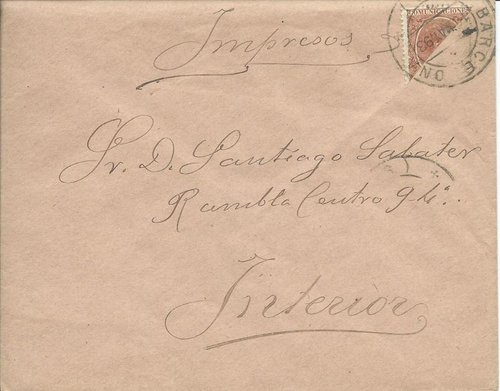 Impresos
COMUNICACIONES
BARCE
Sr. D. Santiago Sabater
Rambla Centro 9
Interior